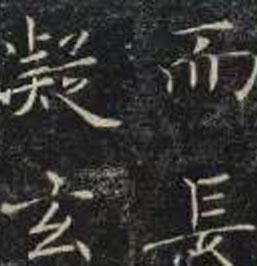 而長
凝玄